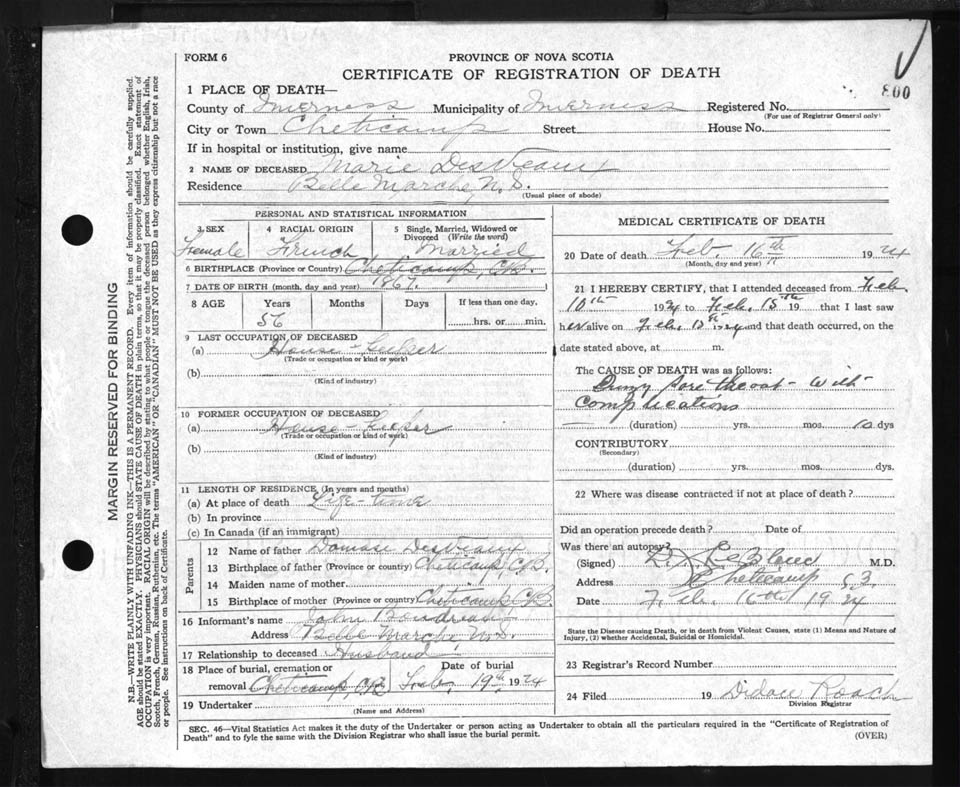 FORM 6
PROVINCE OF NOVA SCOTIA
CERTIFICATE OF REGISTRATION OF DEATH
800
1 PLACE OF DEATH—
County of Inverness Municipality of Inverness Registered No.
(For use of Registrar General only)
City or Town Cheticamp Street House No.
If in hospital or institution, give name
2 NAME OF DECEASED Marie DesVeaux
Residence Belle Marche, N.S.
(Usual place of abode)
PERSONAL AND STATISTICAL INFORMATION
3 SEX 4 RACIAL ORIGIN 5 Single, Married, Widowed or Divorced (Write the word)
Female French Married
6 BIRTHPLACE (Province or Country) Cheticamp, C.B.
7 DATE OF BIRTH (month, day and year) 1867.
8 AGE Years Months Days If less than one day,
56 hrs. or min.
9 LAST OCCUPATION OF DECEASED
(a) House-Keeper
(Trade or occupation or kind of work)
(b)
(Kind of industry)
10 FORMER OCCUPATION OF DECEASED
(a) House-Keeper
(Trade or occupation or kind of work)
(b)
(Kind of industry)
11 LENGTH OF RESIDENCE (In years and months)
(a) At place of death Life-time
(b) In province
(c) In Canada (if an immigrant)
Parents
12 Name of father DesVeaux
13 Birthplace of father (Province or country) Cheticamp, C.B.
14 Maiden name of mother
15 Birthplace of mother (Province or country) Cheticamp C.B.
16 Informant's name John Boudreau
Address Belle Marche N.S.
17 Relationship to deceased Husband
18 Place of burial, cremation or Date of burial
removal Cheticamp C.B. Feb. 19th 1924
19 Undertaker
(Name and Address)
MEDICAL CERTIFICATE OF DEATH
20 Date of death Feb. 16th 1924
(Month, day and year)
21 I HEREBY CERTIFY, that I attended deceased from Feb.
10th 1924 to Feb. 15th 19 that I last saw
her alive on Feb. 24 and that death occurred, on the
date stated above, at m.
The CAUSE OF DEATH was as follows:
Quinzy Sore throat - with
complications
(duration) yrs. mos. 10 dys
CONTRIBUTORY
(Secondary)
(duration) yrs. mos. dys.
22 Where was disease contracted if not at place of death?
Did an operation precede death? Date of
Was there an autopsy?
(Signed) LeBlanc M.D.
Address Cheticamp C.B
Date Feb. 16th 1924
State the Disease causing Death, or in death from Violent Causes, state (1) Means and Nature of
Injury, (2) whether Accidental, Suicidal or Homicidal.
23 Registrar's Record Number
24 Filed 19 Didace Roach
Division Registrar
SEC. 46—Vital Statistics Act makes it the duty of the Undertaker or person acting as Undertaker to obtain all the particulars required in the "Certificate of Registration of
Death" and to fyle the same with the Division Registrar who shall issue the burial permit.
(OVER)
MARGIN RESERVED FOR BINDING
N.B.—WRITE PLAINLY WITH UNFADING INK—THIS IS A PERMANENT RECORD. Every item of information should be carefully supplied.
AGE should be stated EXACTLY. PHYSICIANS should STATE CAUSE OF DEATH in plain terms, so that it may be properly classified. Exact statement of
OCCUPATION is very important. RACIAL ORIGIN will be described by stating to what people or tongue the deceased person belonged whether English, Irish,
Scotch, French, German, Russian, Ruthenian, etc. The terms "AMERICAN" OR "CANADIAN" MUST NOT BE USED as they express citizenship but not a race
or people. See instructions on back of Certificate.